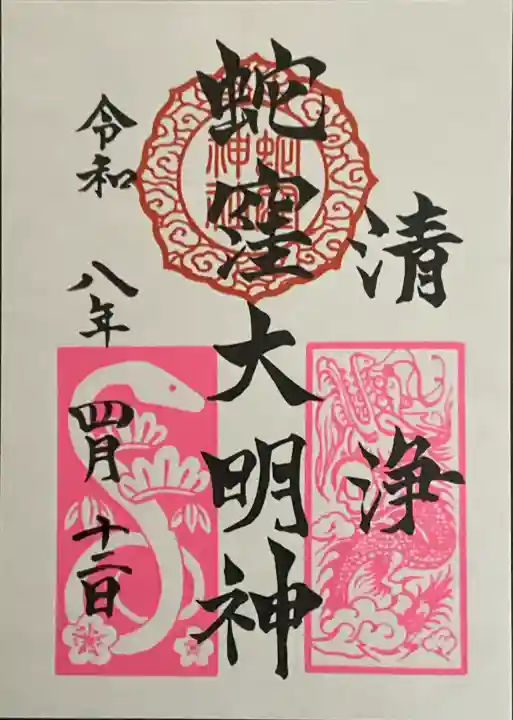 清浄
蛇窪大明神
令和八年四月十二日
蛇窪
神社